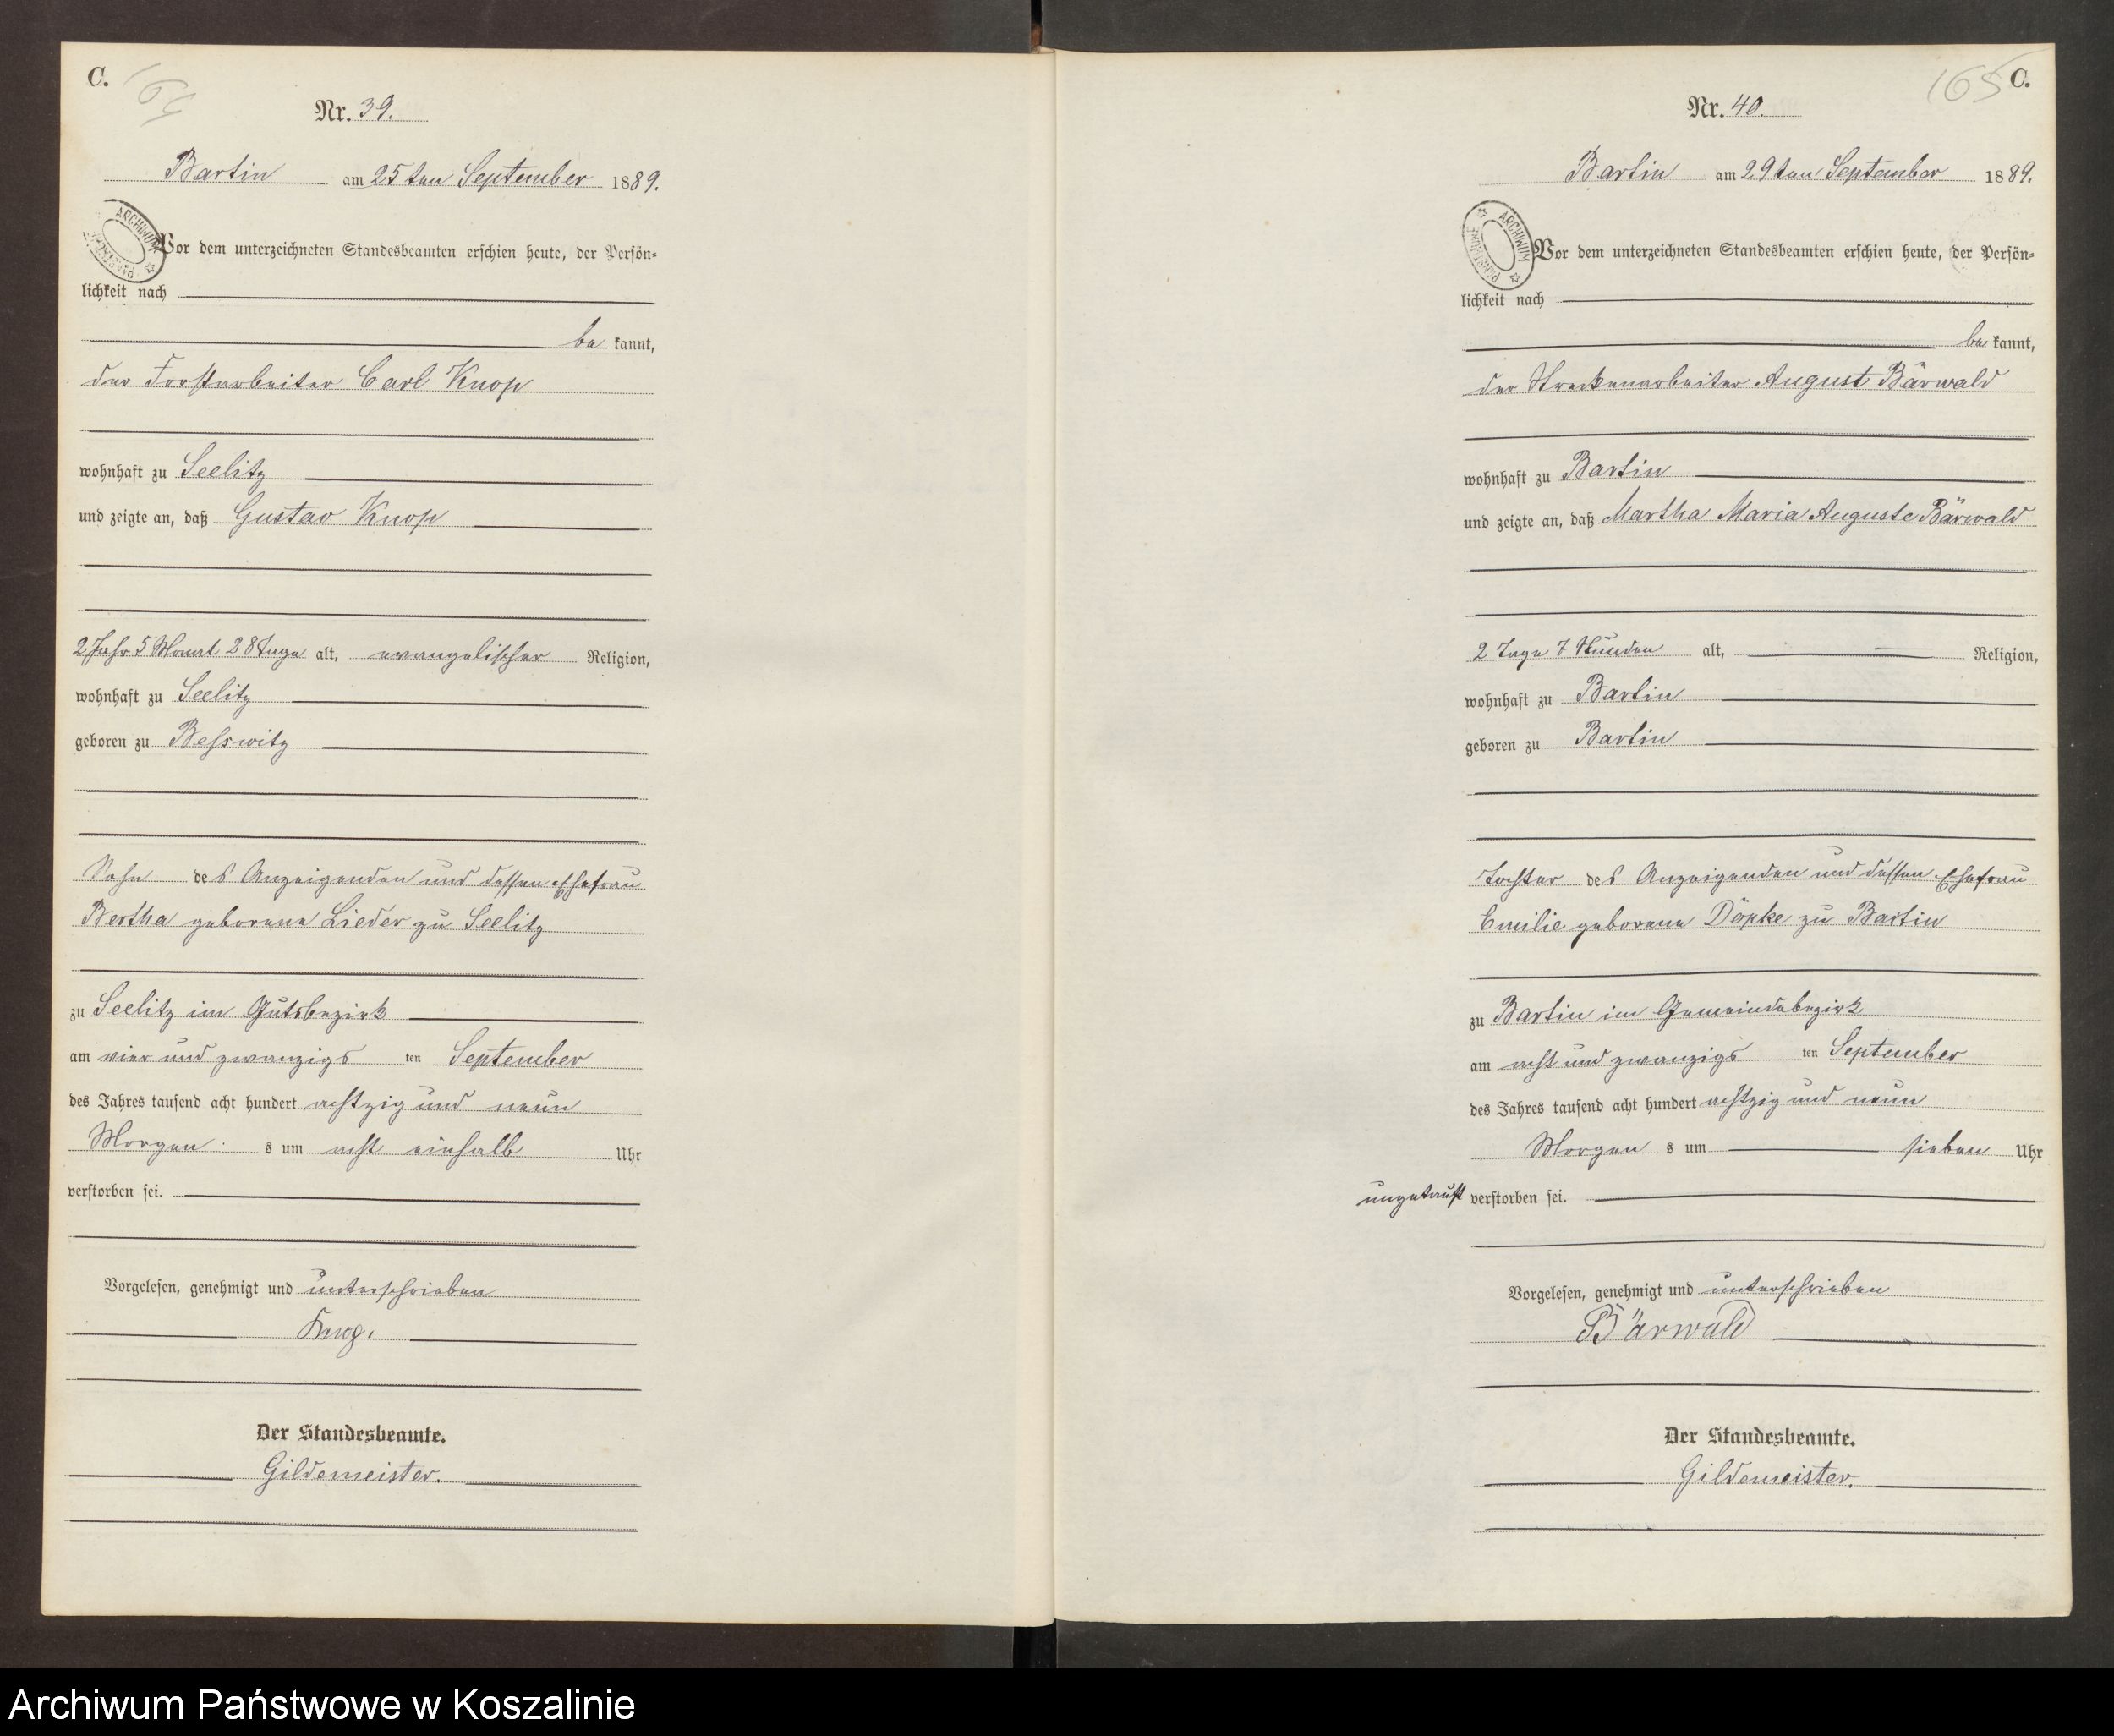 C.
164
Nr. 39.
Bartin am 25ten September 1889.
ARCHIWUM PAŃSTWOWE
Vor dem unterzeichneten Standesbeamten erschien heute, der Persön-
lichkeit nach
be kannt,
der Forstarbeiter Carl Knop
wohnhaft zu Seelitz
und zeigte an, daß Gustav Knop
2 Jahr 5 Monat 28 Tage alt, evangelischer Religion,
wohnhaft zu Seelitz
geboren zu Besswitz
Sohn des Anzeigenden und dessen Ehefrau
Bertha geborene Lieder zu Seelitz
zu Seelitz im Gutsbezirk
am vier und zwanzigs ten September
des Jahres tausend acht hundert achtzig und neun
Morgen s um acht einhalb Uhr
verstorben sei.
Vorgelesen, genehmigt und unterschrieben
Knop.
Der Standesbeamte.
Gildemeister.
165 C.
Nr. 40.
Bartin am 29ten September 1889.
ARCHIWUM PAŃSTWOWE
Vor dem unterzeichneten Standesbeamten erschien heute, der Persön-
lichkeit nach
be kannt,
der Streckenarbeiter August Bärwald
wohnhaft zu Bartin
und zeigte an, daß Martha Maria Auguste Bärwald
2 Tage 7 Stunden alt, Religion,
wohnhaft zu Bartin
geboren zu Bartin
Tochter des Anzeigenden und dessen Ehefrau
Emilie geborene Döpke zu Bartin
zu Bartin im Gemeindebezirk
am acht und zwanzigs ten September
des Jahres tausend acht hundert achtzig und neun
Morgen s um sieben Uhr
ungetauft verstorben sei.
Vorgelesen, genehmigt und unterschrieben
Bärwald
Der Standesbeamte.
Gildemeister.
Archiwum Państwowe w Koszalinie